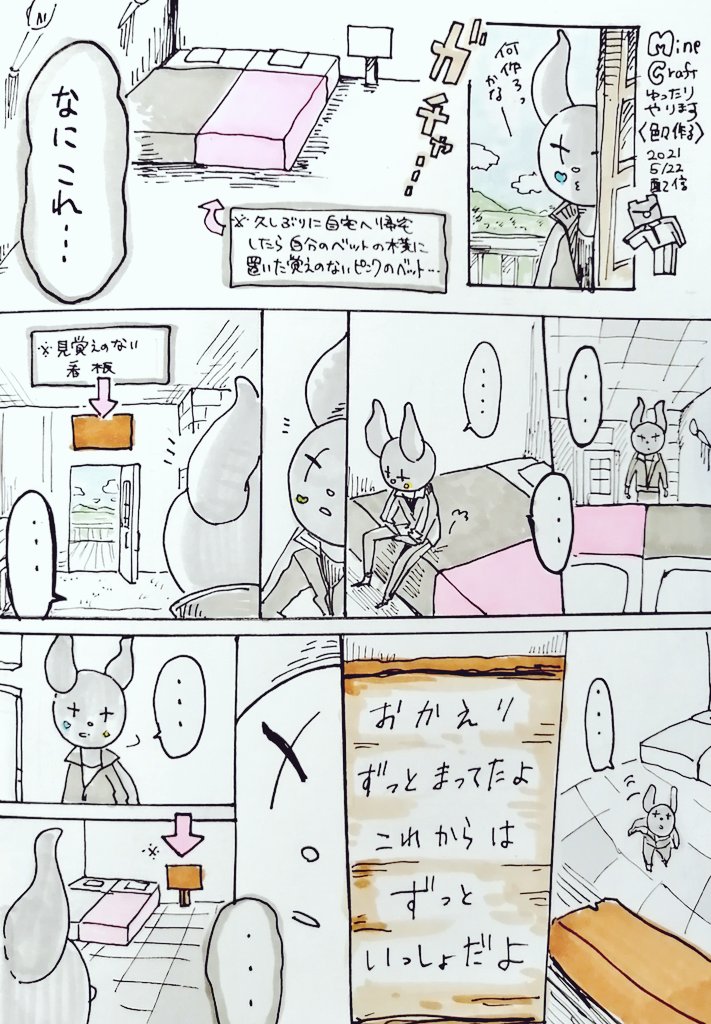 Mine
Craft
ゆったり
やります
2021
5/22
配信
何作ろっ
かな
ガチャ…
※久しぶりに自宅へ帰宅
したら自分のベットの横に
置いた覚えのないピンクのベット…
なにこれ…
…
…
…
※見覚えのない
看板
…
…
おかえり
ずっとまってたよ
これからは
ずっと
いっしょだよ
…
※
…